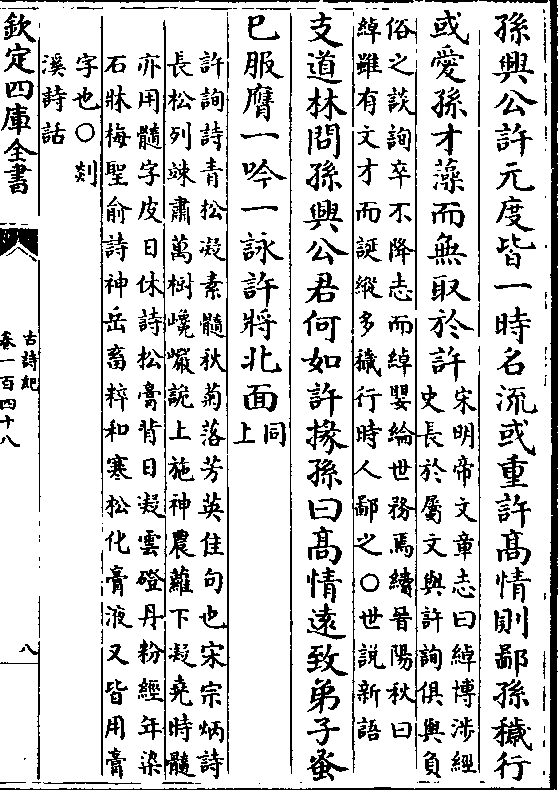 孫興公許元度皆一時名流或重許髙情則鄙孫穢行
或愛孫才藻而無取於許
宋明帝文章志曰綽博涉經
史長於屬文與許詢俱與負
俗之談詢卒不降志而綽嬰綸世務焉續晉陽秋曰
綽雖有文才而誕縱多穢行時人鄙之〇世説新語
支道林問孫興公君何如許掾孫曰髙情逺致弟子蚤
已服膺一吟一詠許將北面
同
上
許詢詩青松凝素髓秋菊落芳英佳句也宋宗炳詩
長松列竦肅萬樹巉巖詭上施神農蘿下凝堯時髓
亦用髓字皮日休詩松膏背日凝雲磴丹粉經年染
石牀梅聖俞詩神岳畜粹和寒松化膏液又皆用膏
字也〇剡
溪詩話
欽定四庫全書
古詩紀
卷一百四十八
八